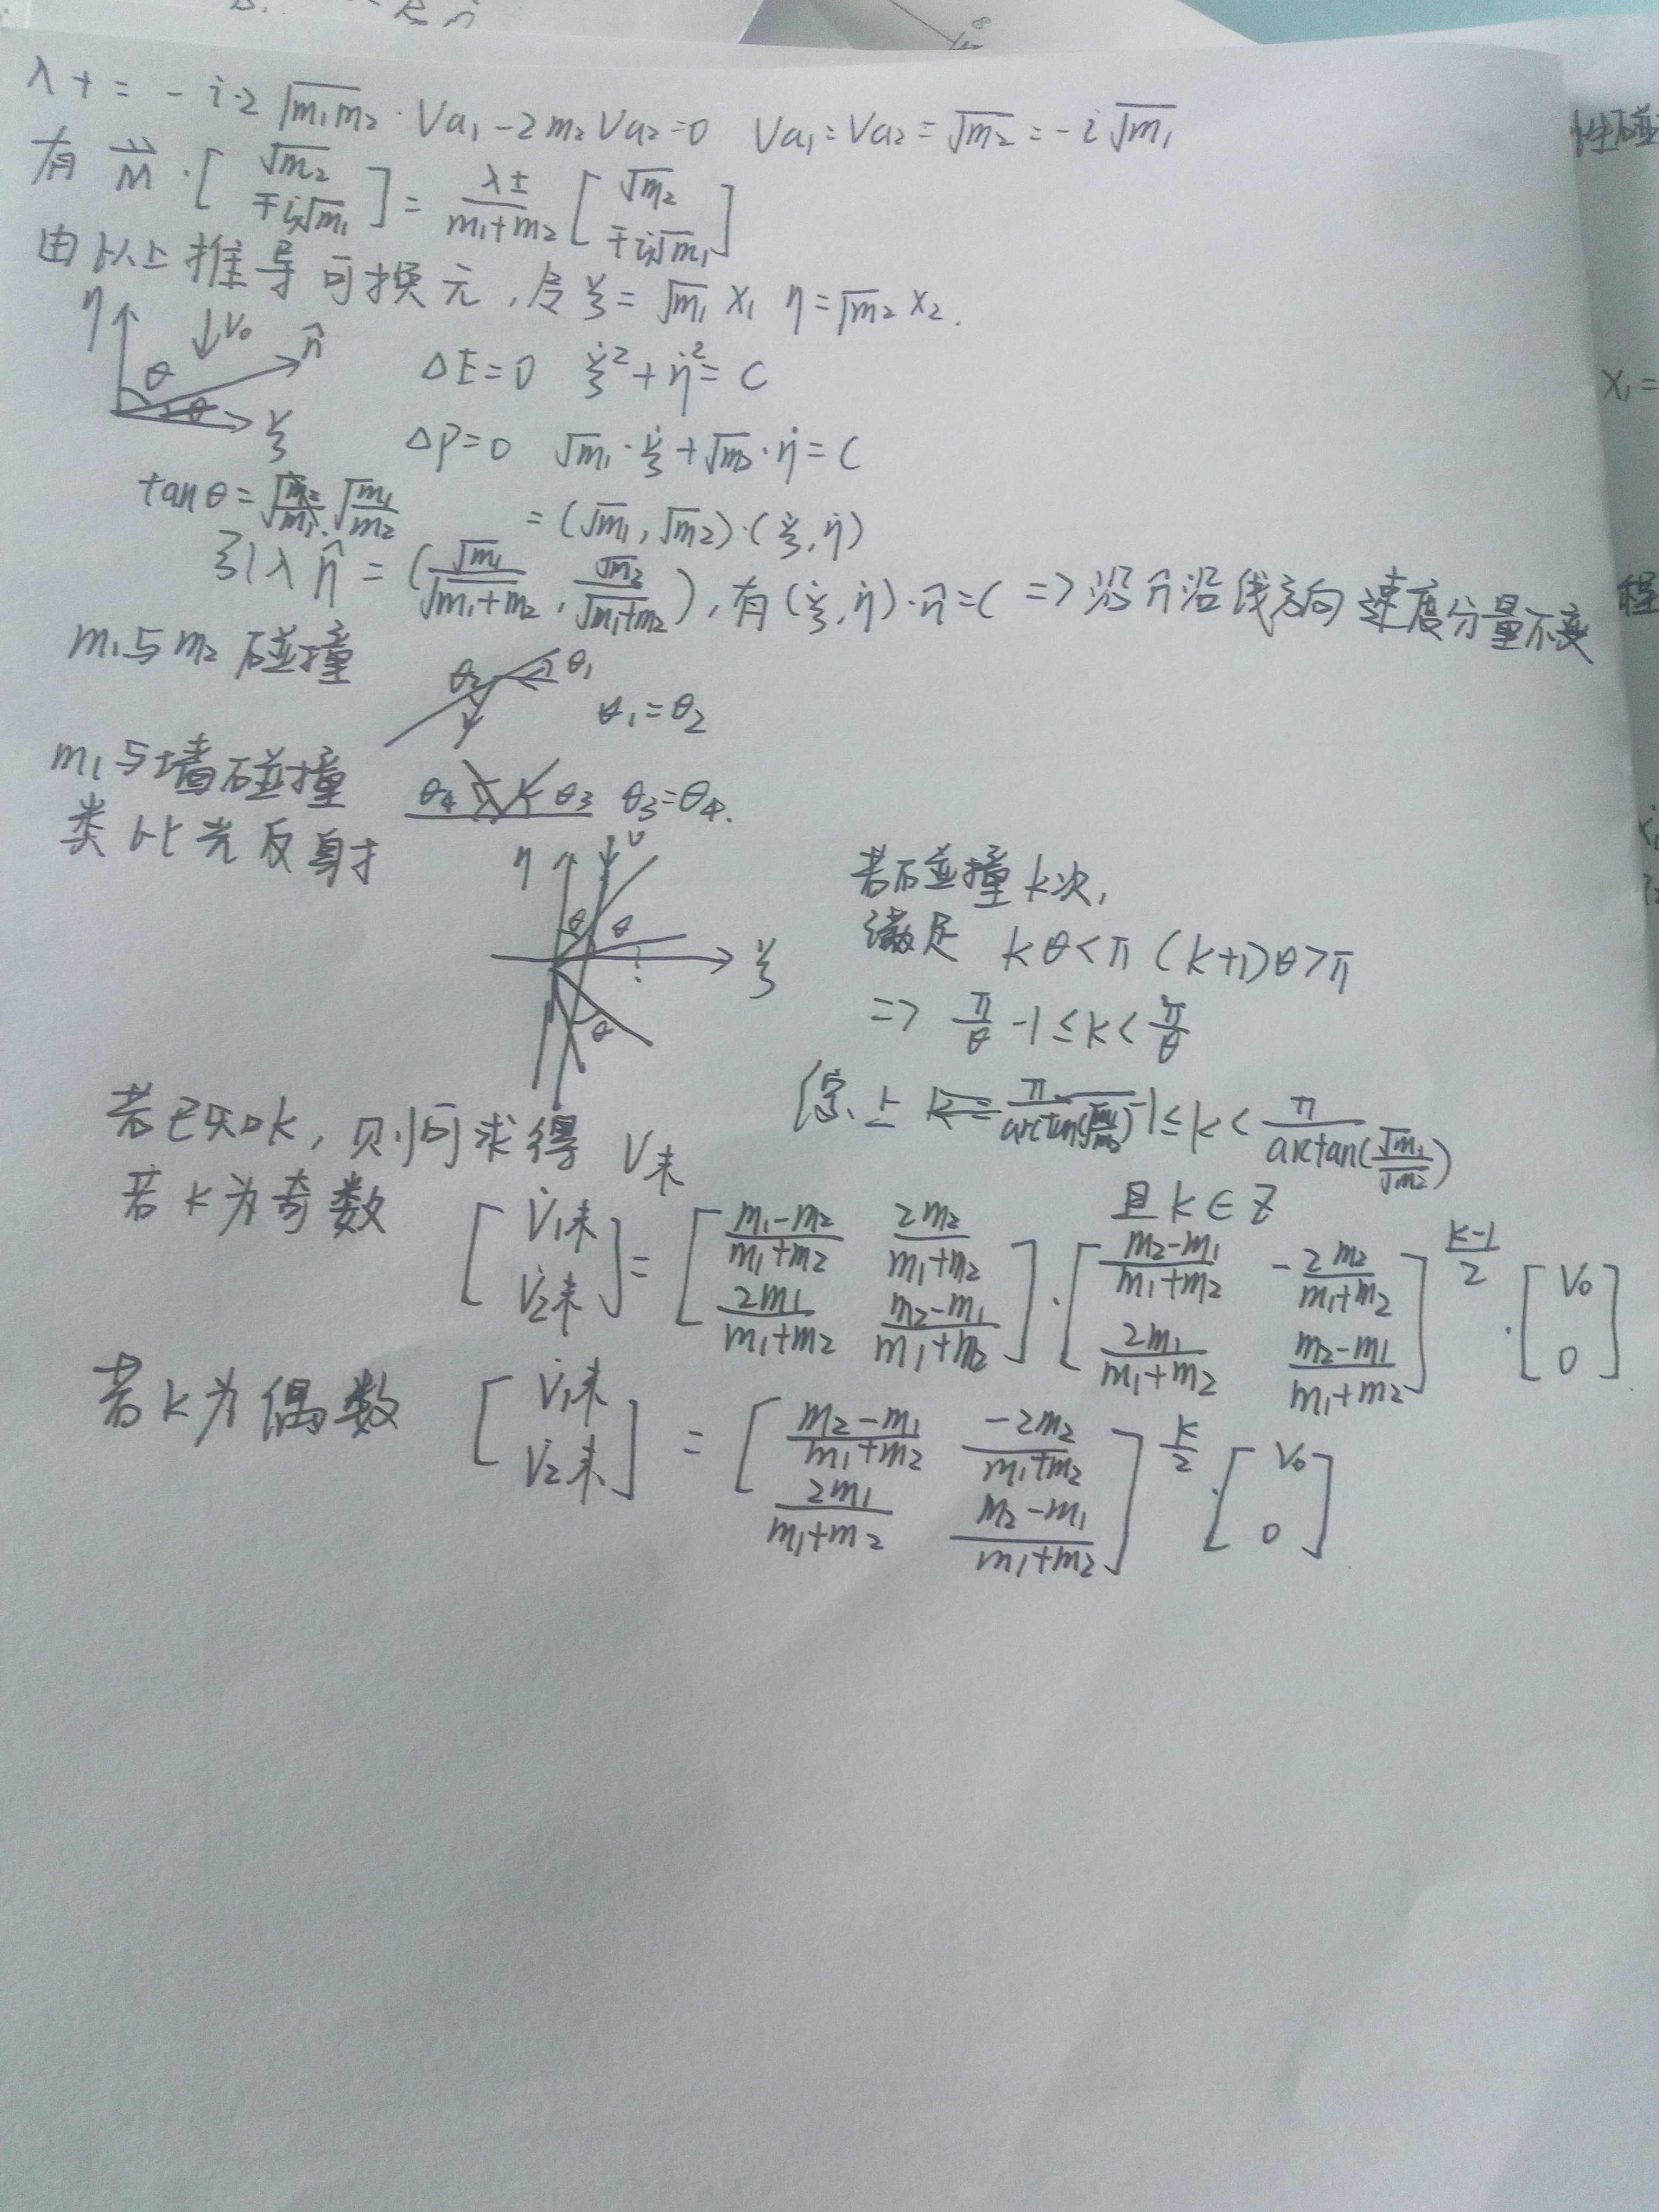 λ+ = -i·2√(m₁m₂)·Va₁-2m₂Va₂=0 Va₁=Va₂=√m₂=-i√m₁
有 M·[√m₂ ∓i√m₁] = λ±/(m₁+m₂) [√m₂ ∓i√m₁]
由以上推导可换元,令ξ=√m₁ x₁ η=√m₂ x₂.
η ↓V₀ n̂ θ ξ
ΔE=0 ξ̇²+η̇²=C
ΔP=0 √m₁·ξ̇+√m₂·η̇=C
tanθ=√(m₁/m₂) =(√m₁,√m₂)·(ξ̇,η̇)
引入n̂=(√m₁/√(m₁+m₂), √m₂/√(m₁+m₂)),有(ξ̇,η̇)·n̂=C => 沿n̂沿线方向速度分量不变
m₁与m₂碰撞 θ₂ θ₁ θ₁=θ₂
m₁与墙碰撞 θ₄ θ₃ θ₃=θ₄.
类比光反射
η v θ θ ξ θ
若碰撞k次,
满足 kθ<π (k+1)θ>π
=> π/θ -1≤k<π/θ
综上 π/arctan(√m₁/√m₂) -1≤k<π/arctan(√m₁/√m₂)
且k∈Z
若已知k,则可求得 V末
若k为奇数 [V̇₁末 V̇₂末] = [(m₁-m₂)/(m₁+m₂) 2m₂/(m₁+m₂) 2m₁/(m₁+m₂) (m₂-m₁)/(m₁+m₂)]·[(m₂-m₁)/(m₁+m₂) -2m₂/(m₁+m₂) 2m₁/(m₁+m₂) (m₂-m₁)/(m₁+m₂)]^((k-1)/2)·[V₀ 0]
若k为偶数 [V̇₁末 V̇₂末] = [(m₂-m₁)/(m₁+m₂) -2m₂/(m₁+m₂) 2m₁/(m₁+m₂) (m₂-m₁)/(m₁+m₂)]^(k/2)·[V₀ 0]
性碰
x₁=
程